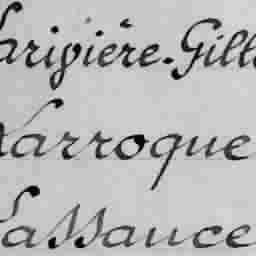 Larivière-Gill
Larroque
Lassauce